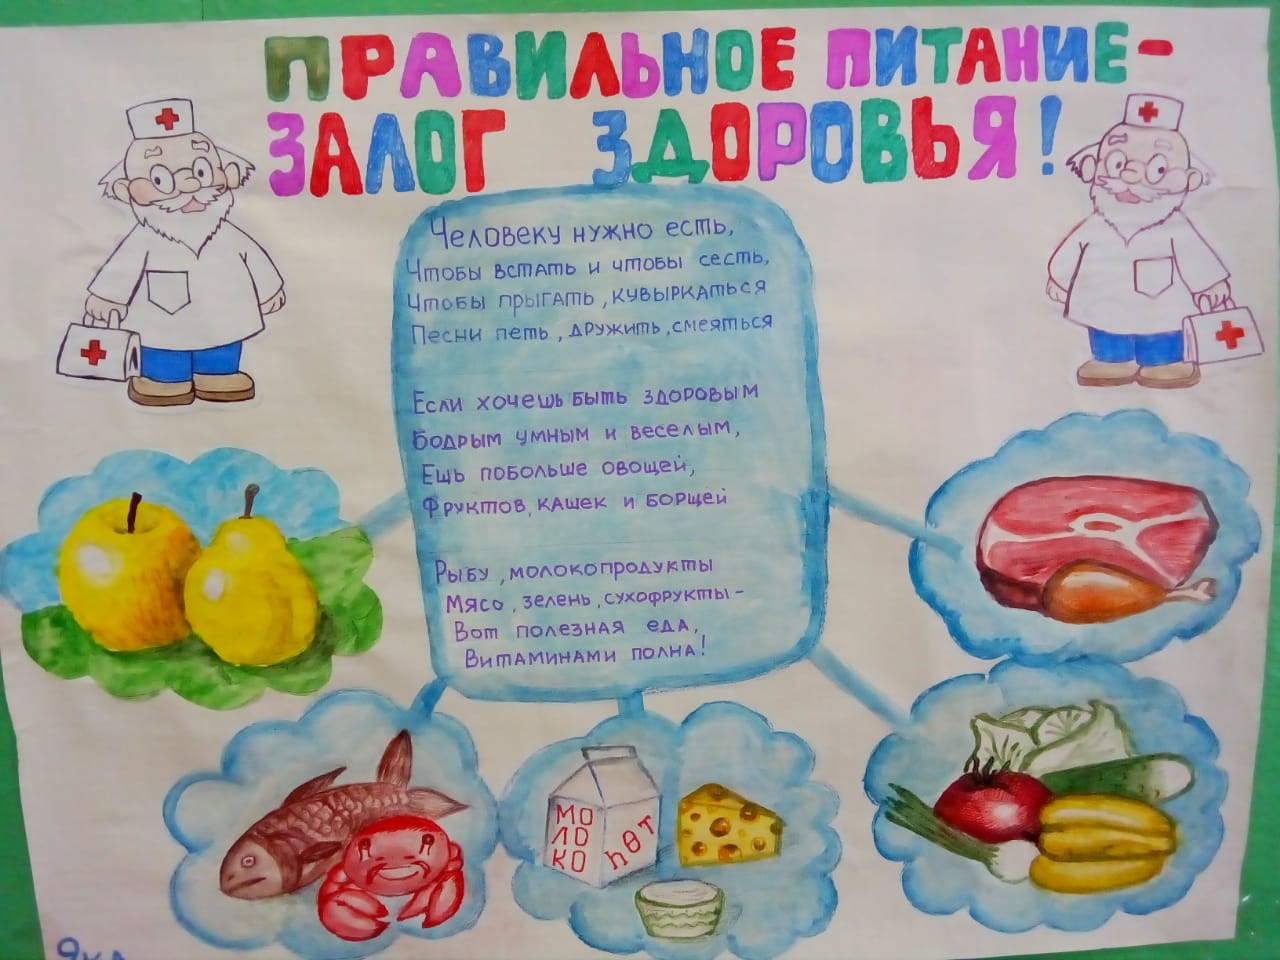 ПРАВИЛЬНОЕ ПИТАНИЕ-
ЗАЛОГ ЗДОРОВЬЯ!
Человеку нужно есть,
Чтобы встать и чтобы сесть,
Чтобы прыгать, кувыркаться
Песни петь, дружить, смеяться
Если хочешь быть здоровым
Бодрым умным и веселым,
Ещь побольше овощей,
Фруктов, кашек и борщей
Рыбу, молокопродукты
Мясо, зелень, сухофрукты-
Вот полезная еда,
Витаминами полна!
МО
ЛО
КО